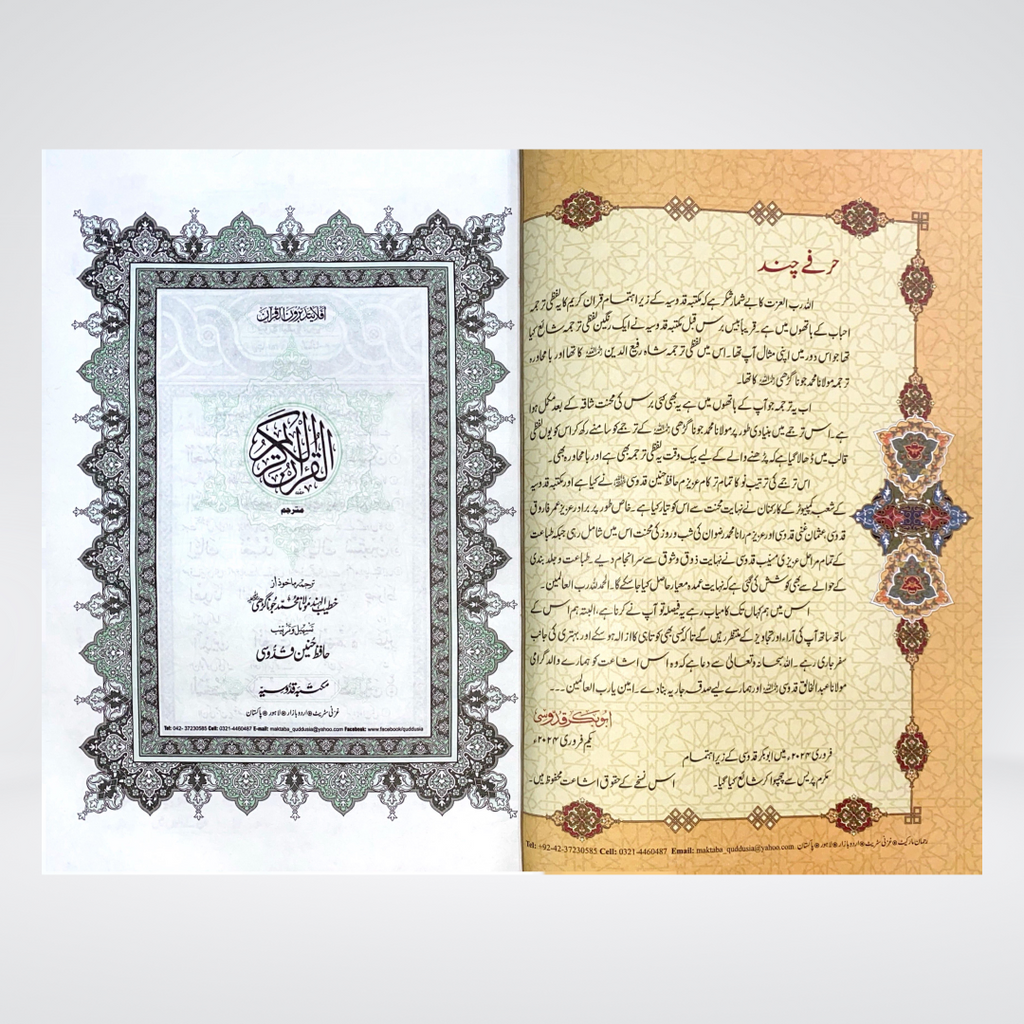 حرفے چند
اللہ رب العزت کا بے شمار شکر ہے کہ مکتبہ قدوسیہ کے زیر اہتمام قرآن کریم کا یہ لفظی ترجمہ
احباب کے ہاتھوں میں ہے۔ قریباً بیس برس قبل مکتبہ قدوسیہ نے ایک رنگین لفظی ترجمہ شائع کیا
تھا جو اس دور میں اپنی مثال آپ تھا۔ اس میں لفظی ترجمہ شاہ رفیع الدین رحمہ اللہ کا تھا اور بامحاورہ
ترجمہ مولانا محمد جوناگڑھی رحمہ اللہ کا تھا۔
اب یہ ترجمہ جو آپ کے ہاتھوں میں ہے یہ بھی کئی برس کی محنت شاقہ کے بعد مکمل ہوا
ہے۔ اس ترجمے میں بنیادی طور پر مولانا محمد جوناگڑھی رحمہ اللہ کے ترجمے کو سامنے رکھ کر اس کو یوں لفظی
قالب میں ڈھالا گیا ہے کہ پڑھنے والے کے لیے بیک وقت یہ لفظی ترجمہ بھی ہے اور بامحاورہ بھی۔
اس ترجمے کی ترتیب نو کا تمام تر کام عزیزم حافظ حنین قدوسی نے کیا ہے اور مکتبہ قدوسیہ
کے شعبہ کمپیوٹر کے کارکنان نے نہایت محنت سے اس کو تیار کیا ہے۔ خاص طور پر برادر عزیز عمر فاروق
قدوسی، عثمان غنی قدوسی اور عزیزم رانا محمد رضوان کی شب و روز کی محنت اس میں شامل رہی جبکہ طباعت
کے تمام مراحل عزیزی منیب قدوسی نے نہایت ذوق و شوق سے سرانجام دیے۔ طباعت و جلد بندی
کے حوالے سے بھی کوشش کی گئی ہے کہ نہایت عمدہ معیار حاصل کیا جا سکے گا۔ الحمد للہ رب العالمین۔
اس میں ہم کہاں تک کامیاب رہے یہ فیصلہ تو آپ نے کرنا ہے، البتہ ہم اس کے
ساتھ ساتھ آپ کی آراء اور تجاویز کے منتظر رہیں گے تاکہ کسی بھی کوتاہی کا ازالہ ہو سکے اور بہتری کی جانب
سفر جاری رہے۔ اللہ سبحانہ وتعالیٰ سے دعا ہے کہ وہ اس اشاعت کو ہمارے والد گرامی
مولانا عبدالخالق قدوسی رحمہ اللہ اور ہمارے لیے صدقہ جاریہ بنا دے۔ آمین یا رب العالمین۔۔۔
ابوبکر قدوسی
یکم فروری ۲۰۲۴ء
فروری ۲۰۲۴ء میں ابوبکر قدوسی کے زیر اہتمام
مکرم پریس سے چھپوا کر شائع کیا گیا۔ اس نسخے کے حقوق اشاعت محفوظ ہیں۔
رحمان مارکیٹ ❋ غزنی سٹریٹ ❋ اردو بازار ❋ لاہور ❋ پاکستان Tel: +92-42-37230585 Cell: 0321-4460487 Email: maktaba_quddusia@yahoo.com
أفلا يتدبرون القرآن
القرآن الكريم
مترجم
ترجمہ ماخوذ از
خطیب الہند مولانا محمد جوناگڑھی
تسہیل و ترتیب
حافظ حنین قدوسی
مکتبہ قدوسیہ
غزنی سٹریٹ ❋ اردو بازار ❋ لاہور ❋ پاکستان
Tel: 042- 37230585 Cell: 0321-4460487 E-mail: maktaba_quddusia@yahoo.com Facebook: www.facebook/quddusia